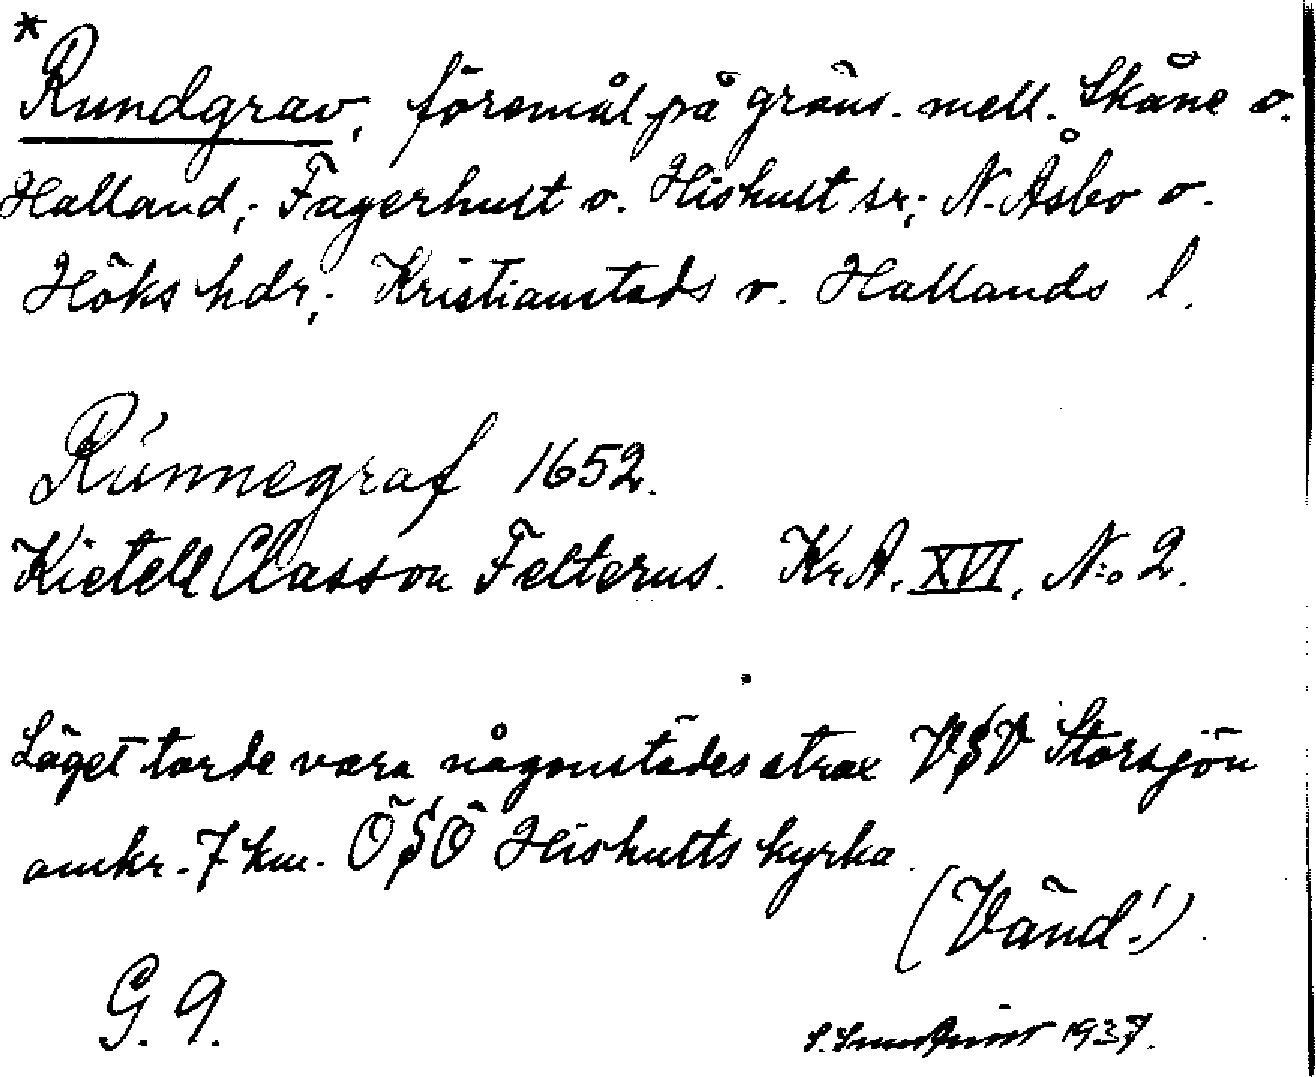 *Rundgrav, föremål på gräns. mell. Skåne o.
Halland; Fagerhult o. Hishult sr; N. Åsbo o.
Höks hdr; Kristianstads o. Hallands l.
Rúnnegraf 1652.
Kietell Classon Felterus. KrA. XVI, N:o 2.
Läget torde vara någonstädes strax VSV Storsjön
omkr. 7 km. ÖSÖ Hishults kyrka.
(Vänd!)
G. 9.
1937.